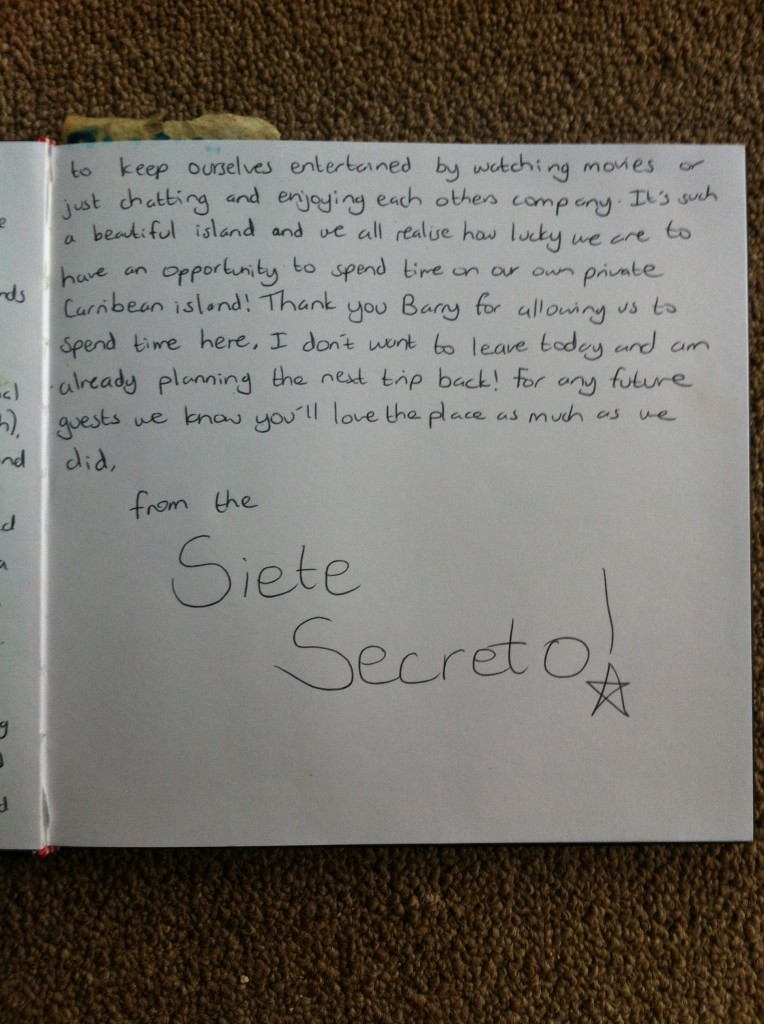 to keep ourselves entertained by watching movies or
just chatting and enjoying each others company. It's such
a beautiful island and we all realise how lucky we are to
have an opportunity to spend time on our own private
Carribean island! Thank you Barry for allowing us to
spend time here, I don't want to leave today and am
already planning the next trip back! for any future
guests we know you'll love the place as much as we
did,
from the
Siete
Secreto!